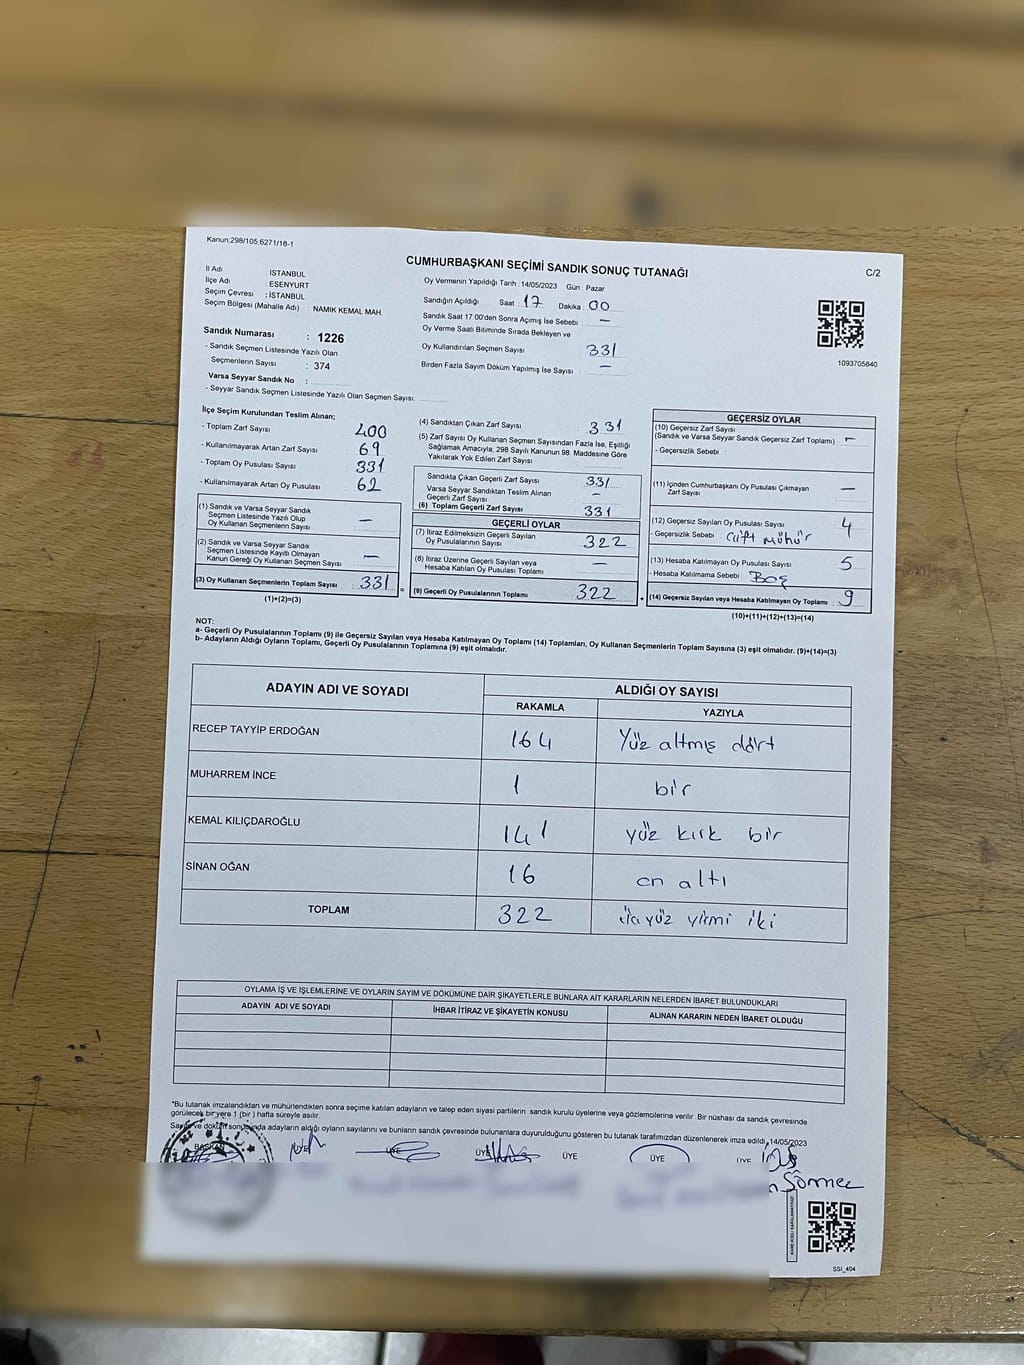 Kanun:298/105;6271/18-1
CUMHURBAŞKANI SEÇİMİ SANDIK SONUÇ TUTANAĞI
C/2
İl Adı : İSTANBUL
İlçe Adı : ESENYURT
Seçim Çevresi : İSTANBUL
Seçim Bölgesi (Mahalle Adı) : NAMIK KEMAL MAH.
Sandık Numarası : 1226
- Sandık Seçmen Listesinde Yazılı Olan
Seçmenlerin Sayısı : 374
Varsa Seyyar Sandık No :
- Seyyar Sandık Seçmen Listesinde Yazılı Olan Seçmen Sayısı:
Oy Vermenin Yapıldığı Tarih :14/05/2023 Gün : Pazar
Sandığın Açıldığı Saat 17 Dakika : 00
Sandık Saat 17:00'den Sonra Açılmış İse Sebebi : –
Oy Verme Saati Bitiminde Sırada Bekleyen ve
Oy Kullandırılan Seçmen Sayısı : 331
Birden Fazla Sayım Döküm Yapılmış İse Sayısı : –
1093705840
İlçe Seçim Kurulundan Teslim Alınan;
- Toplam Zarf Sayısı : 400
- Kullanılmayarak Artan Zarf Sayısı : 69
- Toplam Oy Pusulası Sayısı : 331
- Kullanılmayarak Artan Oy Pusulası : 62
(1) Sandık ve Varsa Seyyar Sandık
Seçmen Listesinde Yazılı Olup
Oy Kullanan Seçmenlerin Sayısı : –
(2) Sandık ve Varsa Seyyar Sandık
Seçmen Listesinde Kayıtlı Olmayan
Kanun Gereği Oy Kullanan Seçmen Sayısı : –
(3) Oy Kullanan Seçmenlerin Toplam Sayısı : 331
(1)+(2)=(3)
(4) Sandıktan Çıkan Zarf Sayısı : 331
(5) Zarf Sayısı Oy Kullanan Seçmen Sayısından Fazla İse, Eşitliği
Sağlamak Amacıyla; 298 Sayılı Kanunun 98. Maddesine Göre
Yakılarak Yok Edilen Zarf Sayısı :
Sandıkta Çıkan Geçerli Zarf Sayısı : 331
Varsa Seyyar Sandıktan Teslim Alınan
Geçerli Zarf Sayısı : –
(6) Toplam Geçerli Zarf Sayısı : 331
GEÇERLİ OYLAR
(7) İtiraz Edilmeksizin Geçerli Sayılan
Oy Pusulalarının Sayısı : 322
(8) İtiraz Üzerine Geçerli Sayılan veya
Hesaba Katılan Oy Pusulası Toplamı : –
(9) Geçerli Oy Pusulalarının Toplamı : 322
GEÇERSİZ OYLAR
(10) Geçersiz Zarf Sayısı
(Sandık ve Varsa Seyyar Sandık Geçersiz Zarf Toplamı) : –
- Geçersizlik Sebebi :
(11) İçinden Cumhurbaşkanı Oy Pusulası Çıkmayan
Zarf Sayısı : –
(12) Geçersiz Sayılan Oy Pusulası Sayısı : 4
- Geçersizlik Sebebi : Çift mühür
(13) Hesaba Katılmayan Oy Pusulası Sayısı : 5
- Hesaba Katılmama Sebebi : Boş
(14) Geçersiz Sayılan veya Hesaba Katılmayan Oy Toplamı : 9
(10)+(11)+(12)+(13)=(14)
NOT:
a- Geçerli Oy Pusulalarının Toplamı (9) ile Geçersiz Sayılan veya Hesaba Katılmayan Oy Toplamı (14) Toplamları, Oy Kullanan Seçmenlerin Toplam Sayısına (3) eşit olmalıdır. (9)+(14)=(3)
b- Adayların Aldığı Oyların Toplamı, Geçerli Oy Pusulalarının Toplamına (9) eşit olmalıdır.
ADAYIN ADI VE SOYADI
ALDIĞI OY SAYISI
RAKAMLA YAZIYLA
RECEP TAYYİP ERDOĞAN 164 Yüz altmış dört
MUHARREM İNCE 1 bir
KEMAL KILIÇDAROĞLU 141 yüz kırk bir
SİNAN OĞAN 16 on altı
TOPLAM 322 üçyüz yirmi iki
OYLAMA İŞ VE İŞLEMLERİNE VE OYLARIN SAYIM VE DÖKÜMÜNE DAİR ŞİKAYETLERLE BUNLARA AİT KARARLARIN NELERDEN İBARET BULUNDUKLARI
ADAYIN ADI VE SOYADI İHBAR İTİRAZ VE ŞİKAYETİN KONUSU ALINAN KARARIN NEDEN İBARET OLDUĞU
*Bu tutanak imzalandıktan ve mühürlendikten sonra seçime katılan adayların ve talep eden siyasi partilerin sandık kurulu üyelerine veya gözlemcilerine verilir. Bir nüshası da sandık çevresinde
görülecek bir yere 1 (bir) hafta süreyle asılır.
Sayım ve döküm sonucunda adayların aldığı oyların sayılarını ve bunların sandık çevresinde bulunanlara duyurulduğunu gösteren bu tutanak tarafımızdan düzenlenerek imza edildi. 14/05/2023
BAŞKAN ÜYE ÜYE ÜYE ÜYE ÜYE
Sönmez
SSİ_404